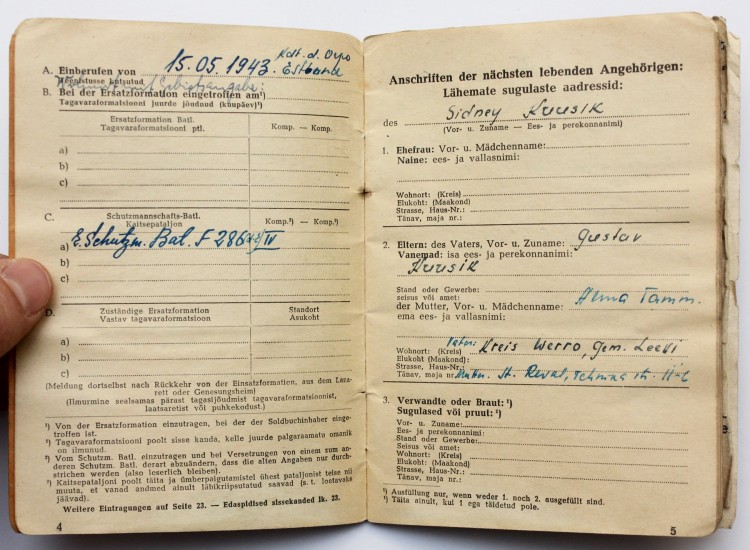 A. Einberufen von 15.05.1943. Kdt. d. Orpo
Meenistusse kutsutud Estland
B. Bei der Ersatzformation eingetroffen am¹)
Tagavaraformatsiooni juurde jõudund (kuupäev)¹)
Ersatzformation Batl. Komp. — Komp.
Tagavaraformatsiooni ptl.
a)
b)
c)
C. Schutzmannschafts-Batl. Komp.²) — Komp.²)
Kaitsepataljon
a) E. Schutzm. Bat. F 286 IV
b)
c)
D. Zuständige Ersatzformation Standort
Vastav tagavaraformatsioon Asukoht
a)
b)
c)
(Meldung dortselbst nach Rückkehr von der Einsatzformation, aus dem Laza-
rett oder Genesungsheim)
(Ilmurnine sealsamas pärast tagasijõudmist tagavaraformatsioonist,
laatsaretist või puhkekodust.)
¹) Von der Ersatzformation einzutragen, bei der der Soldbuchinhaber einge-
troffen ist.
¹) Tagavaraformatsiooni poolt sisse kanda, kelle juurde palgaraamatu omanik
on ilmunud.
²) Vom Schutzm. Batl. einzutragen und bei Versetzungen von einem zum an-
deren Schutzm. Batl. derart abzuändern, dass die alten Angaben nur durch-
strichen werden (also leserlich bleiben).
²) Kaitsepataljoni poolt täita ja ümberpalgutamistel ühest pataljonist teise nii
muuta, et vanad andmed ainult läbikriipsutatud saavad (s. t. loetavaks
jäävad).
Weitere Eintragungen auf Seite 23. — Edaspidised sissekanded lk. 23.
4
Anschriften der nächsten lebenden Angehörigen:
Lähemate sugulaste aadressid:
des Sidney Kuusik
(Vor- u. Zuname — Ees- ja perekonnanimi)
1. Ehefrau: Vor- u. Mädchenname:
Naine: ees- ja vallasnimi:
Wohnort: (Kreis)
Elukoht: (Maakond)
Strasse, Haus-Nr.:
Tänav, maja nr.:
2. Eltern: des Vaters, Vor- u. Zuname: Gustav
Vanemad: isa ees- ja perekonnanimi:
Kuusik
Stand oder Gewerbe:
seisus või amet:
der Mutter, Vor- u. Mädchenname: Alma Tamm.
ema ees- ja vallasnimi:
Vater: Kreis Werro, Gem. Leevi
Wohnort: (Kreis)
Elukoht (Maakond):
Strasse, Haus-Nr.:
Tänav, maja nr.: Mutter. St. Reval,
3. Verwandte oder Braut: ¹)
Sugulased või pruut: ¹)
Vor- u. Zuname:
Ees- ja perekonnanimi:
Stand oder Gewerbe:
Seisus või amet:
Wohnort: (Kreis)
Elukoht: (Maakond)
Strasse, Haus-Nr.:
Tänav, maja nr.:
¹) Ausfüllung nur, wenn weder 1. noch 2. ausgefüllt sind.
¹) Täita ainult, kui 1 ega 2 täidetud pole.
5